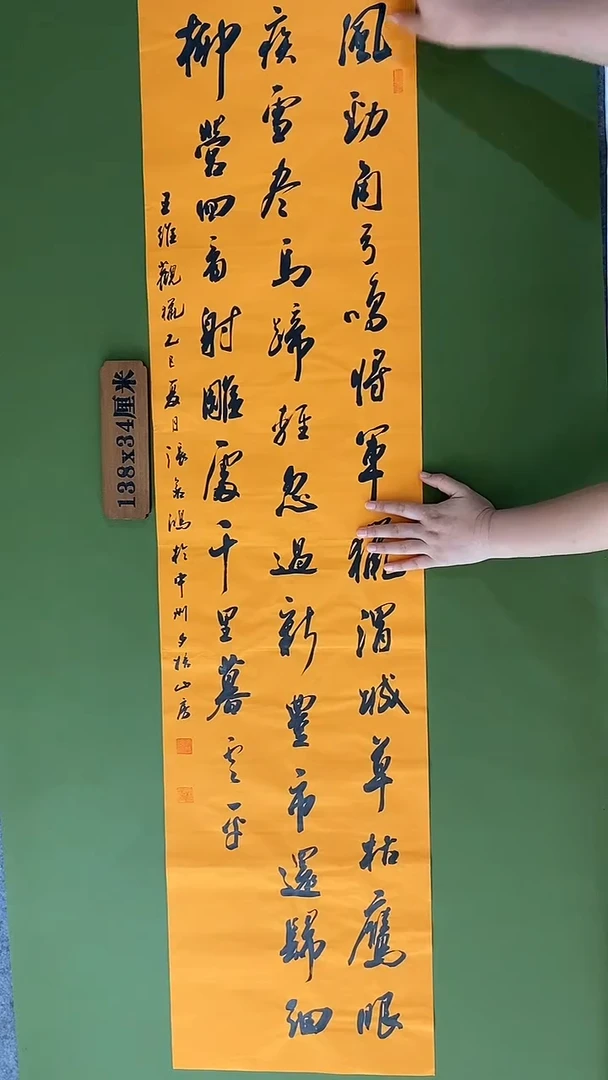 風勁角弓鳴將軍獵渭城草枯鷹眼
疾雪尽馬蹄輕忽過新豐市還歸細
柳營回看射雕處千里暮雲平
王維觀獵乙巳夏日張鴻於中州山房
138x34厘米